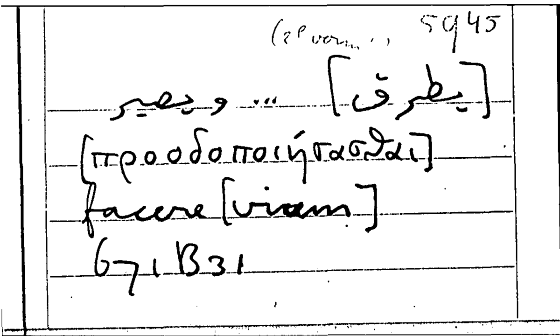 5945
[يطرق] ... ويصير
[προοδοποιήσασθαι]
facere [viam]
671B31